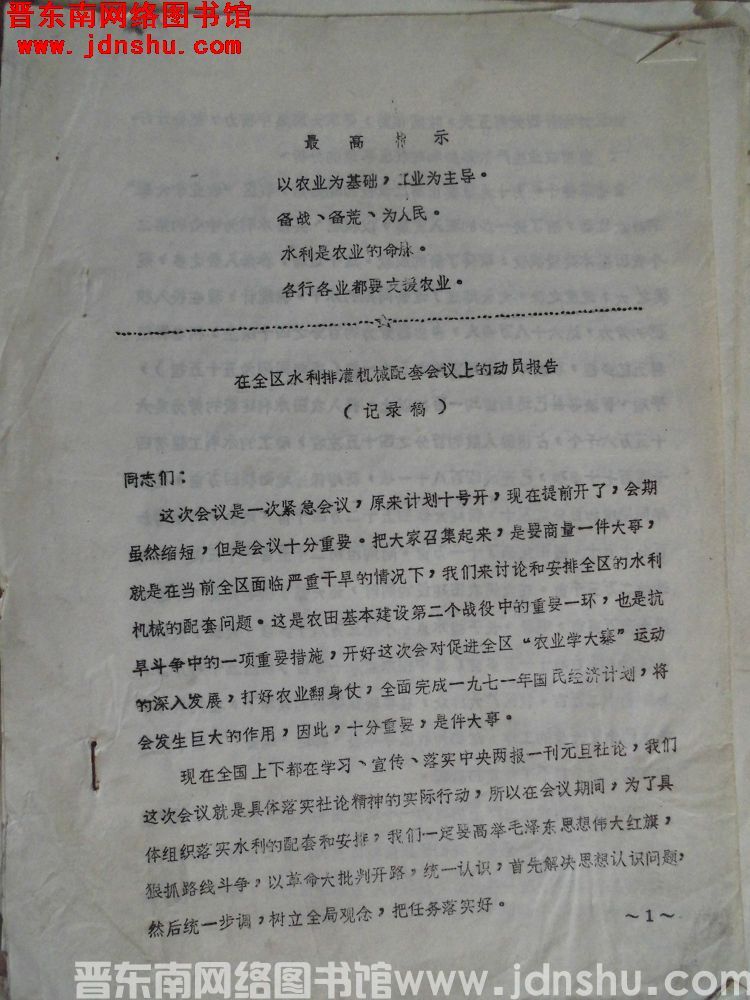 晋东南网络图书馆
www.jdnshu.com
最高指示
以农业为基础，工业为主导。
备战、备荒、为人民。
水利是农业的命脉。
各行各业都要支援农业。
在全区水利排灌机械配套会议上的动员报告
（记录稿）
同志们：
这次会议是一次紧急会议，原来计划十号开，现在提前开了，会期
虽然缩短，但是会议十分重要。把大家召集起来，是要商量一件大事，
就是在当前全区面临严重干旱的情况下，我们来讨论和安排全区的水利
机械的配套问题。这是农田基本建设第二个战役中的重要一环，也是抗
旱斗争中的一项重要措施，开好这次会对促进全区“农业学大寨”运动
的深入发展，打好农业翻身仗，全面完成一九七一年国民经济计划，将
会发生巨大的作用，因此，十分重要，是件大事。
现在全国上下都在学习、宣传、落实中央两报一刊元旦社论，我们
这次会议就是具体落实社论精神的实际行动，所以在会议期间，为了具
体组织落实水利的配套和安排，我们一定要高举毛泽东思想伟大红旗，
狠抓路线斗争，以革命大批判开路，统一认识，首先解决思想认识问题，
然后统一步调，树立全局观念，把任务落实好。
～1～
晋东南网络图书馆www.jdnshu.com